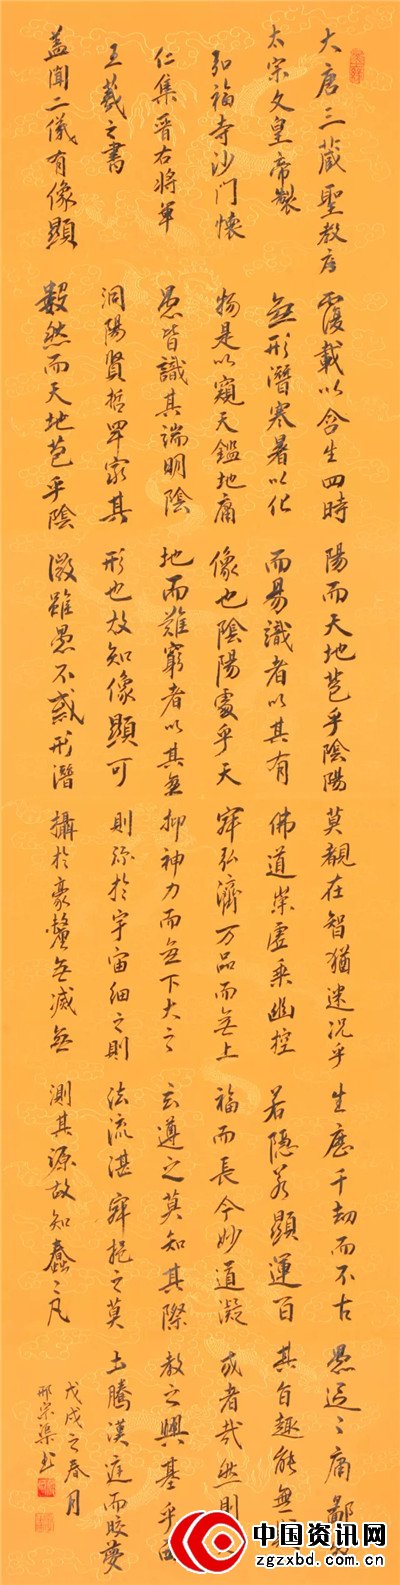 大唐三藏聖教序
太宗文皇帝製
弘福寺沙门懷
仁集晋右將軍
王羲之書
盖聞二儀有像顯
覆載以含生四時
無形潛寒暑以化
物是以窺天鑑地庸
愚皆識其端明陰
洞陽賢哲罕窮其
數然而天地苞乎陰
陽而天地苞乎陰陽
而易識者以其有
像也陰陽處乎天
地而難窮者以其無
形也故知像顯可
徵雖愚不惑形潛
莫覩在智猶迷况乎
佛道崇虛乘幽控
寂弘濟万品而無上
抑神力而無下大之
則弥於宇宙細之則
攝於豪釐無滅無
生歷千劫而不古
若隱若顯運百
福而長今妙道凝
玄遵之莫知其際
法流湛寂挹之莫
測其源故知蠢々凡
愚區々庸鄙
其旨趣能無
或者哉然則
教之興基乎西
土騰漢庭而皎夢
戊戌之春月
邢宗渠书
中国资讯网
zgzxbd.com.cn